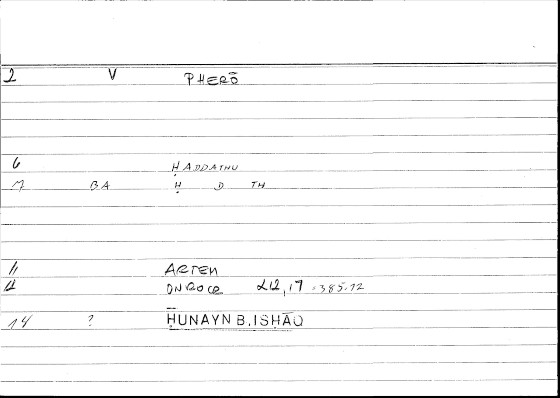 2 V PHERŌ
6 ḤADDATHU
7 BA Ḥ D TH
11 ARTEM
12 ONROCR 212,17 =385.12
14 ? ḤUNAYN B. ISḤĀQ